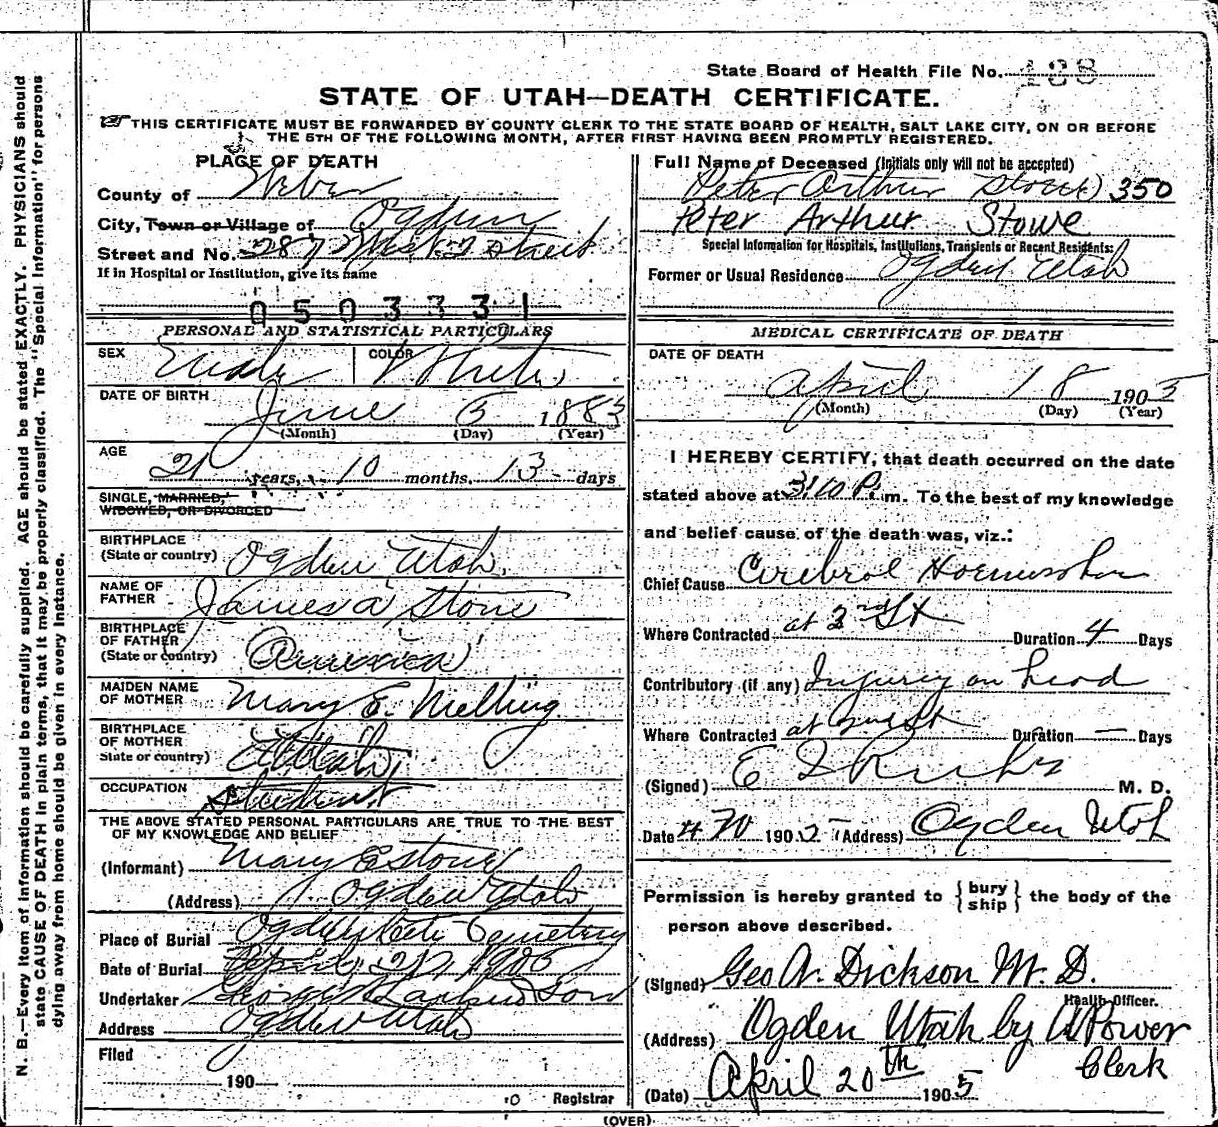 State Board of Health File No. 138
STATE OF UTAH—DEATH CERTIFICATE.
THIS CERTIFICATE MUST BE FORWARDED BY COUNTY CLERK TO THE STATE BOARD OF HEALTH, SALT LAKE CITY, ON OR BEFORE
THE 5TH OF THE FOLLOWING MONTH, AFTER FIRST HAVING BEEN PROMPTLY REGISTERED.
PLACE OF DEATH
County of Weber
City, Town or Village of Ogden
Street and No. 287 Street
If in Hospital or Institution, give its name
0503331
PERSONAL AND STATISTICAL PARTICULARS
SEX Male COLOR White
DATE OF BIRTH June 5 1883
(Month) (Day) (Year)
AGE 21 years, 10 months, 13 days
SINGLE, MARRIED,
WIDOWED, OR DIVORCED
BIRTHPLACE
(State or country) Ogden Utah.
NAME OF
FATHER James A Stone
BIRTHPLACE
OF FATHER
(State or country) America
MAIDEN NAME
OF MOTHER Mary E. Melling
BIRTHPLACE
OF MOTHER
State or country) Utah
OCCUPATION Student
THE ABOVE STATED PERSONAL PARTICULARS ARE TRUE TO THE BEST
OF MY KNOWLEDGE AND BELIEF
(Informant) Mary E Stowe
(Address) Ogden Utah
Place of Burial Ogden City Cemetery
Date of Burial April 21, 1905
Undertaker George Son
Address Ogden Utah
Filed
190
Registrar
Full Name of Deceased (Initials only will not be accepted)
Peter Arthur 350
Peter Arthur Stowe
Special Information for Hospitals, Institutions, Transients or Recent Residents:
Former or Usual Residence Ogden Utah
MEDICAL CERTIFICATE OF DEATH
DATE OF DEATH
April 18 1905
(Month) (Day) (Year)
I HEREBY CERTIFY, that death occurred on the date
stated above at 3:10 P.m. To the best of my knowledge
and belief cause of the death was, viz.:
Chief Cause Cerebral
Where Contracted at 2nd St Duration 4 Days
Contributory (if any) Injury on head
Where Contracted at 2nd St Duration — Days
(Signed) E M. D.
Date 4 20 1905 (Address) Ogden Utah
Permission is hereby granted to {bury ship} the body of the
person above described.
(Signed) Geo W. Dickson M. D.
Health Officer.
(Address) Ogden Utah by Power
Clerk
(Date) April 20th 1905
(OVER)
N. B.—Every item of information should be carefully supplied. AGE should be stated EXACTLY. PHYSICIANS should
state CAUSE OF DEATH in plain terms, that it may be properly classified. The "Special Information" for persons
dying away from home should be given in every instance.